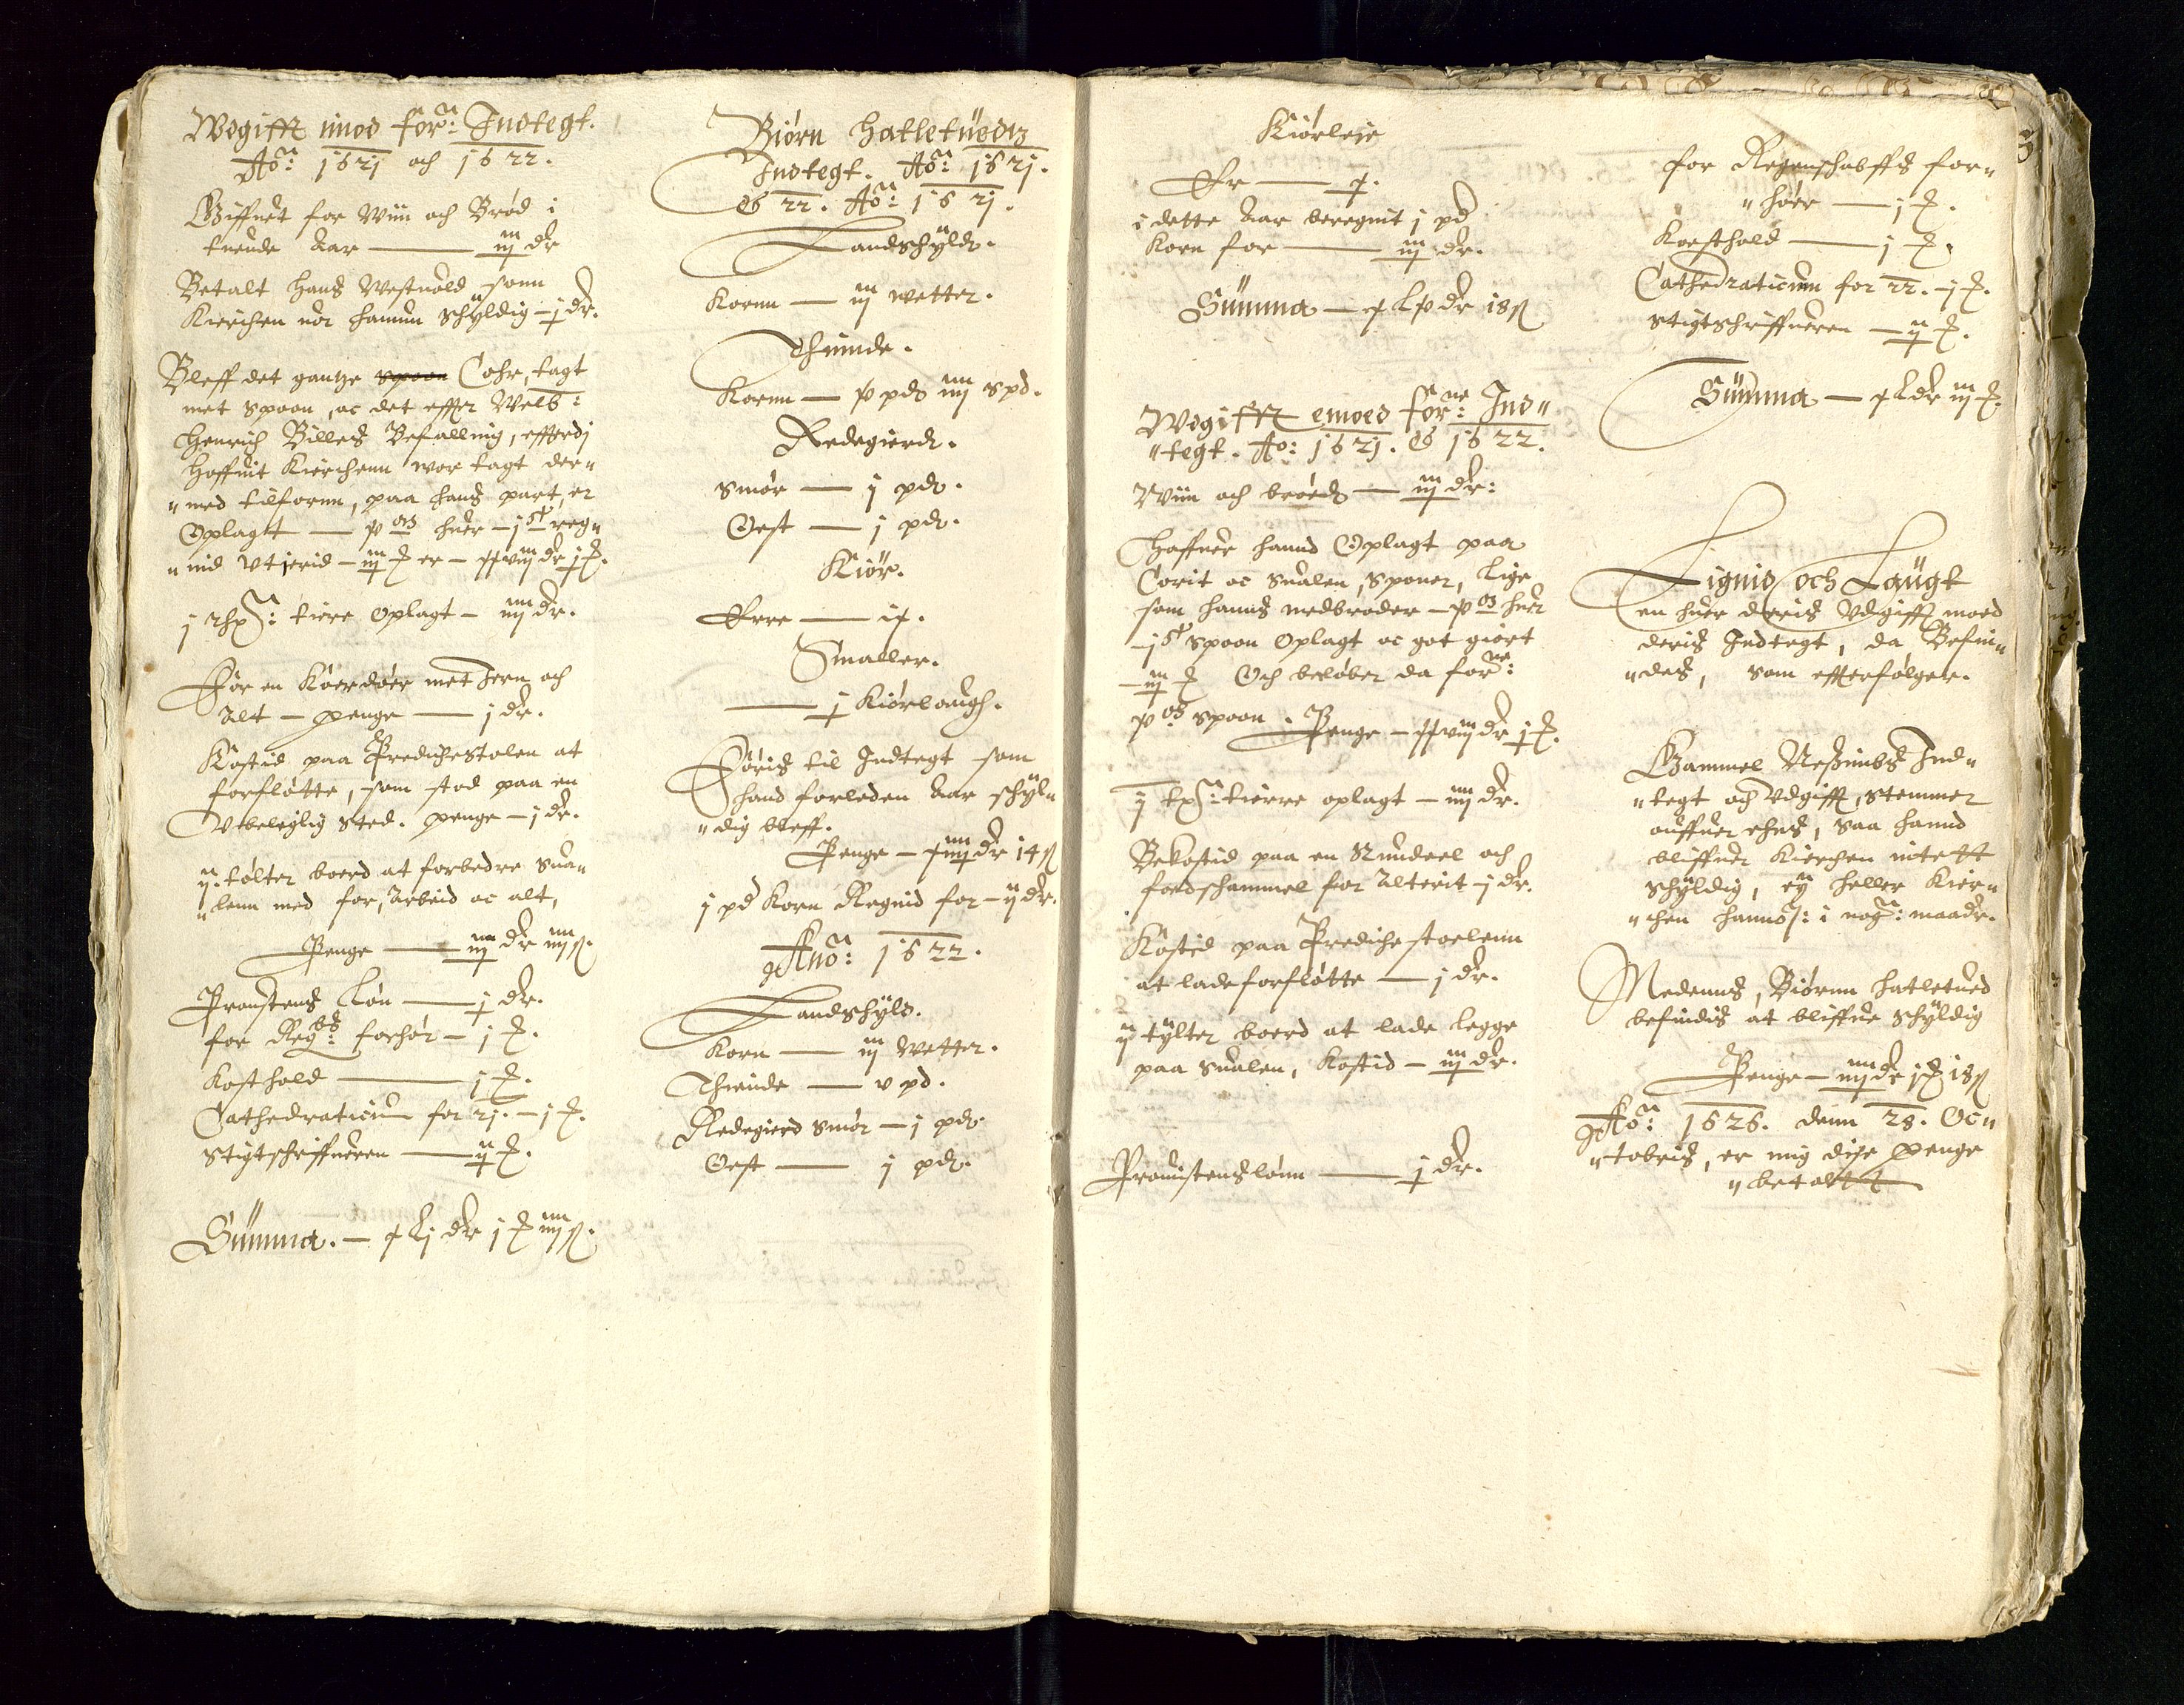 Wdgifft imod forn: Indtegt.
Ao: 1621 och 1622.
Giffuet for Wiin och Brød i
tuende Aar — iij dr
Betalt Hans Westuold som
Kierchen vor hannem schÿldig — j dr.
Bleff det gantze spoon Cohr, tagt
met spoon, oc det effter Welb:
Henrich Billes Befalling, efterdj
Hoffuit Kierchenn wor tagt der„
„med tilfornn, paa hans part, er
Oplagt — hver — j reg„
„nid Vtjerid — iij
j tiere Oplagt — iiij dr.
For en Koerdøer met Jern och
Alt — penge — j dr.
Kostid paa Predichestolen at
forfløtte, som stod paa en
Vbeleglig sted. penge — j dr.
ij. tølter boerd at forbedre Sua„
„lenn med for, Arbeid oc alt,
Penge — iij dr iiij ß.
Proustens Løn — j dr.
for Regbs: forhør — j
Kosthold — j
Cathedraticum for 21. — j
Stigtschriffueren — ij
Summa. — Lj dr j iiij ß.
Biørn Hatletuedtz
Indtegt. Ao: 1621.
& 22. Ao: 1621.
Landschÿldt.
Kornn — iij wetter.
Thiinde.
Kornn — pd iiij spd.
Redegierdt.
Smør — j pd.
Oest — j pd.
Kiør.
Erre — ix.
Smaller.
— j Kiørlaugh.
Føris til Indtegt som
hand forleden Aar schÿl„
„dig bleff.
Penge — xiiij dr 14 ß
j pd Korn Regnid for — ij dr.
Ano: 1622.
Landschÿld.
Korn — iij Wetter.
Thiende — v pd.
Redegierd smør — j pd.
Oest — j pd.
Kiørleje
Er — x.
i dette Aar beregnit j pd
Korn for — iij dr.
Summa — dr 18 ß
Wdgifft emoed forne: Ind„
„tegt. Ao: 1621. & 1622.
Wiin och brøed — iij dr:
Haffuer hannd Oplagt paa
Corit oc sualen, Sponer, Lige
som hanns medbroder — hver
— j spoon Oplagt oc got giort
— iij Och beløber da forne:
spoon. Penge — xxviij dr j
ij tierre oplagt — iiij dr.
Bekostid paa en Knudeel och
fodschammel for Alterit — j dr.
Kostid paa Predichestoelenn
at lade forfløtte — j dr.
ij tÿlter boerd at lade legge
paa sualen, Kostid — iij dr.
Prouistenslønn — j dr.
for Regenschabffs for„
„hør — j
Koesthold — j
Cathedraticum for 22. — j
Stigtschriffueren — ij
Summa — xL dr iij
Lignid och Laugt
en huer deris Vdgifft moed
deris Indtegt, da Befin„
„des, som effterfølger.
Gammel Neßimbs Ind„
„tegt och Vdgifft, stemmer
offuer ehns, saa hannd
bliffuer Kierchen intett
schÿldig, eÿ heller Kier„
„chen hannd: i nogr: maader.
Medenns, Biørnn Hatletued
befindis at bliffue schÿldig
Penge — iiij dr j 18 ß
Ao: 1626. denn 28. Oc„
„tobris, er mig disse penge
„betaltt